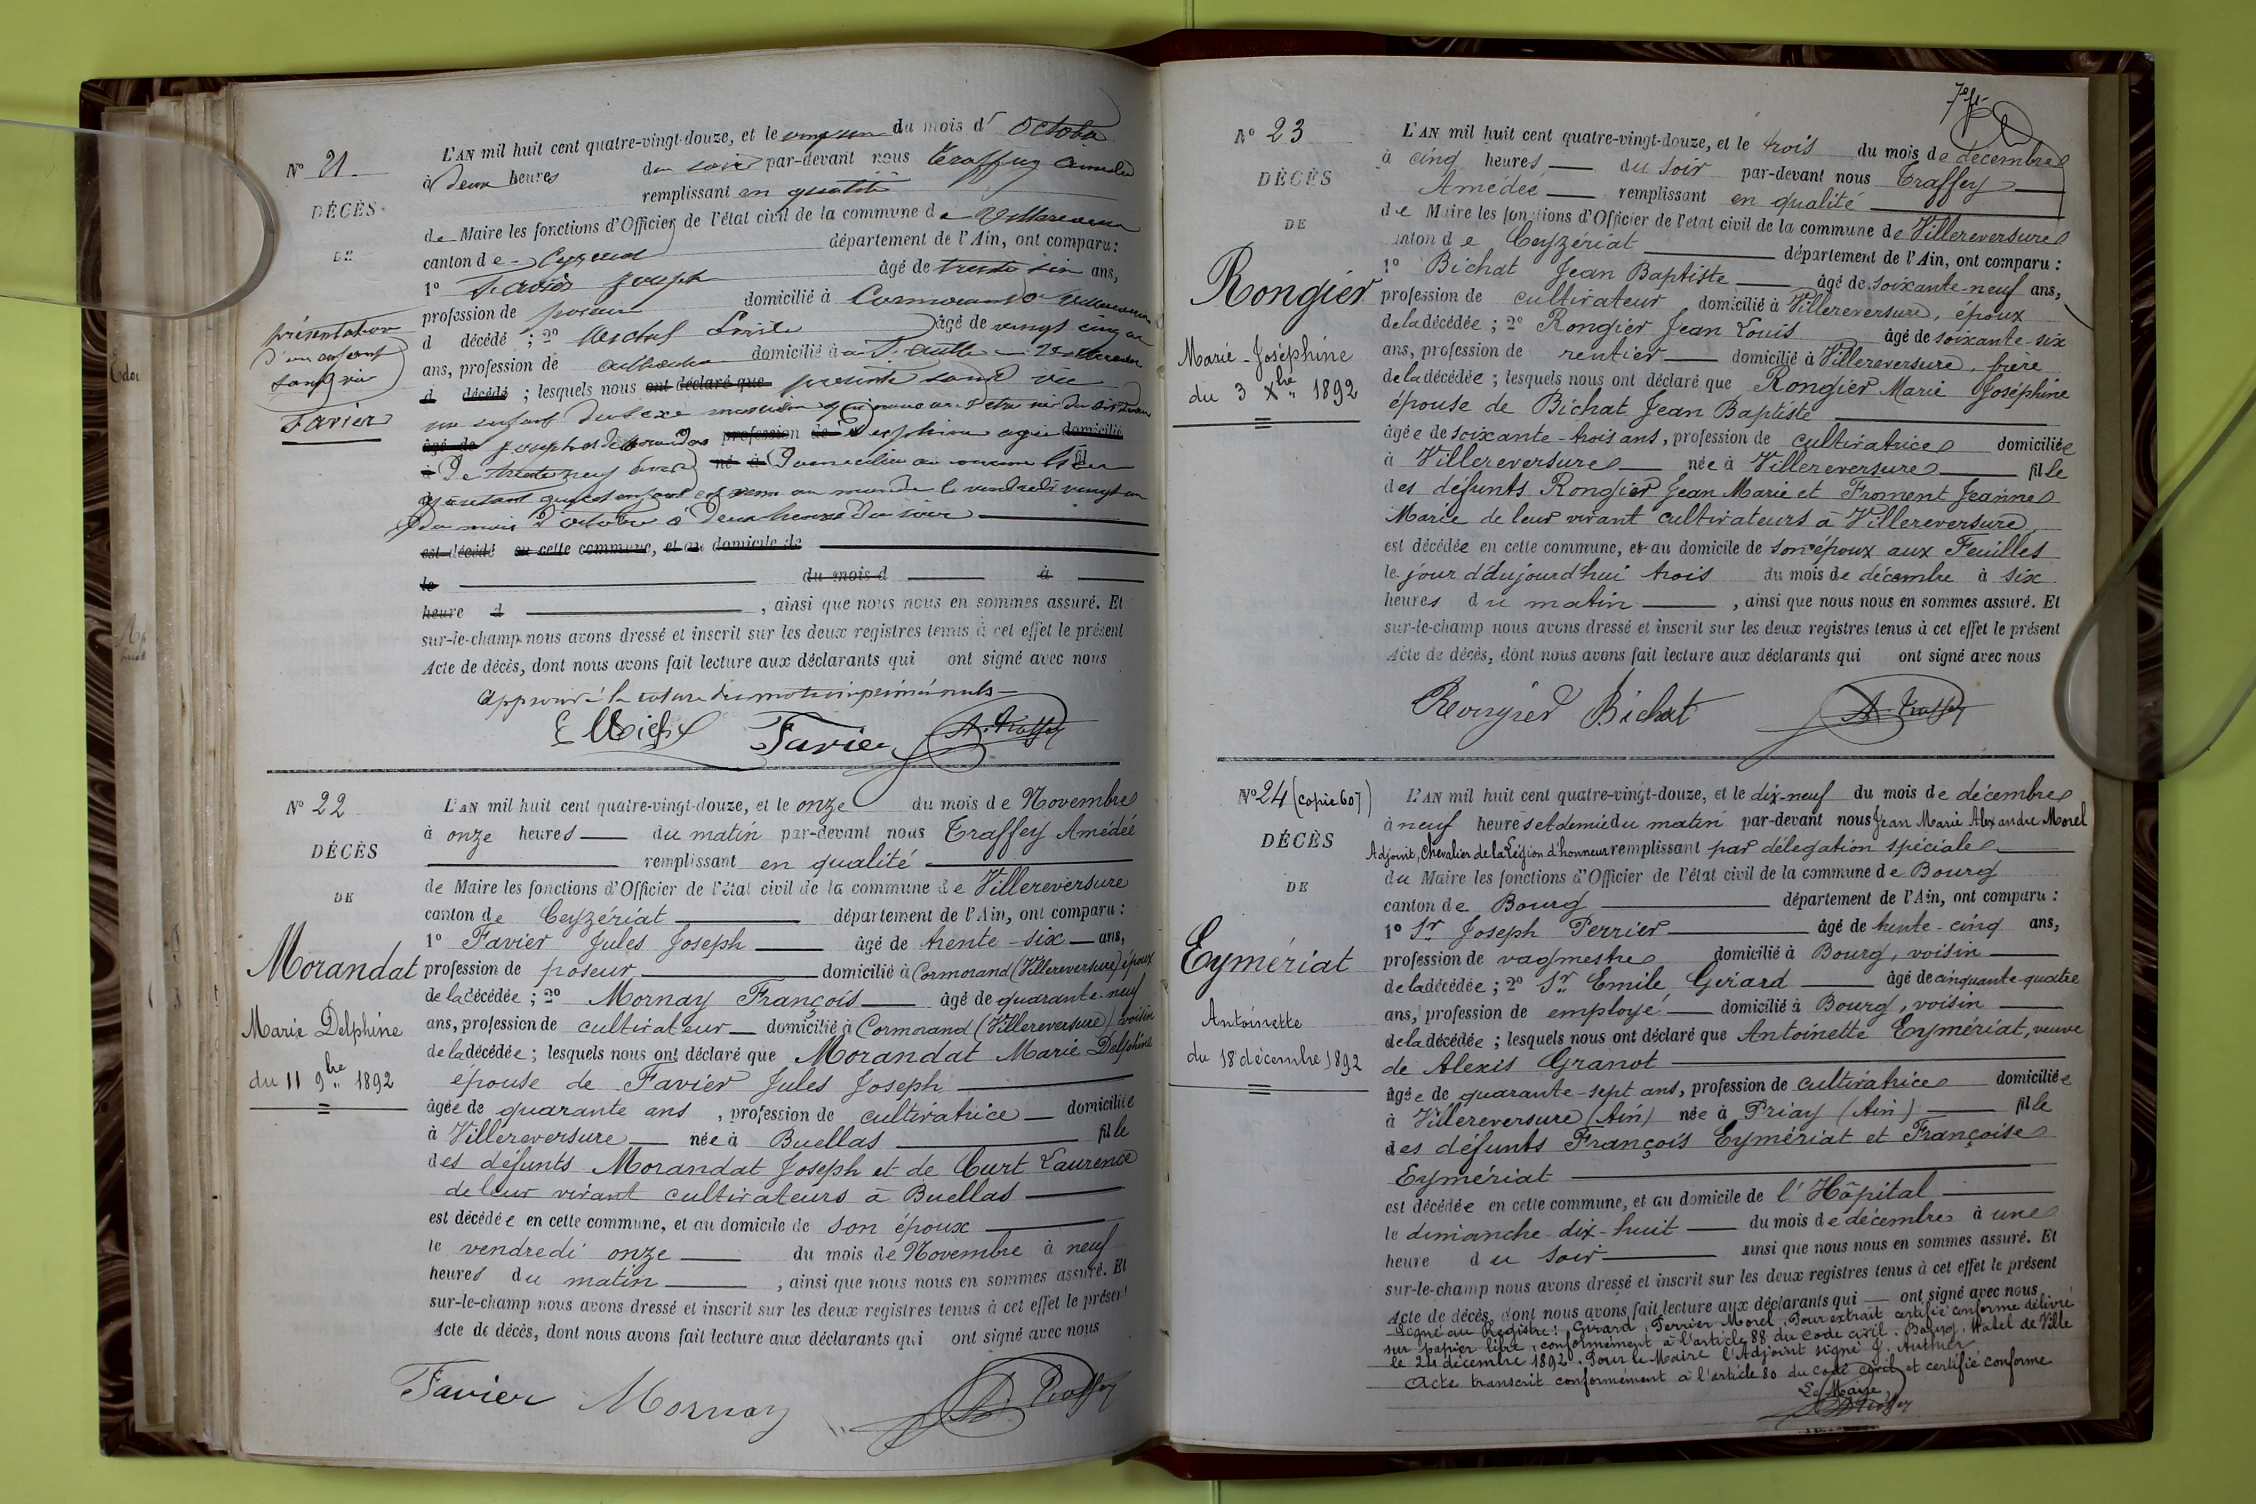 N° 21
DÉCÈS
DE
présentation
d'un enfant
sans vie
Favier
L'AN mil huit cent quatre-vingt-douze, et le vingt un du mois d' Octobre
à deux heures du soir par-devant nous Traffey Amédée
remplissant en qualité
de Maire les fonctions d'Officier de l'état civil de la commune de Villereversure
canton de Ceyzériat département de l'Ain, ont comparu :
1° Favier Joseph âgé de trente six ans,
profession de poseur domicilié à Cormorand Villereversure
d décédé ; 2° Michel Emile âgé de vingt cinq
ans, profession de domicilié à
d décédé ; lesquels nous ont déclaré que présenté sans vie
un enfant du sexe masculin
âgé de Joseph et de profession de Delphine agée domicilié
à De trente neuf né à Domiciliée au fil
qu'cet enfant est venu au monde le vendredi vingt un
du mois d'octobre à deux heures du soir
est décédé en cette commune, et au domicile de
le du mois d à
heure d , ainsi que nous nous en sommes assuré. Et
sur-le-champ nous avons dressé et inscrit sur les deux registres tenus à cet effet le présent
Acte de décès, dont nous avons fait lecture aux déclarants qui ont signé avec nous
Approuvé la rature des mots imprimés nuls
E Michel Favier A. Traffey
N° 22
DÉCÈS
DE
Morandat
Marie Delphine
du 11 9bre 1892
L'AN mil huit cent quatre-vingt-douze, et le onze du mois de Novembre
à onze heures du matin par-devant nous Traffey Amédée
remplissant en qualité
de Maire les fonctions d'Officier de l'état civil de la commune de Villereversure
canton de Ceyzériat département de l'Ain, ont comparu :
1° Favier Jules Joseph âgé de trente-six ans,
profession de poseur domicilié à Cormorand (Villereversure) époux
de la décédée ; 2° Mornay François âgé de quarante-neuf
ans, profession de cultivateur domicilié à Cormorand (Villereversure) voisin
de la décédée ; lesquels nous ont déclaré que Morandat Marie Delphine
épouse de Favier Jules Joseph
âgée de quarante ans , profession de cultivatrice domiciliée
à Villereversure née à Buellas fille
des défunts Morandat Joseph et de Curt Laurence
de leur vivant cultivateurs à Buellas
est décédée en cette commune, et au domicile de son époux
le vendredi onze du mois de Novembre à neuf
heures du matin , ainsi que nous nous en sommes assuré. Et
sur-le-champ nous avons dressé et inscrit sur les deux registres tenus à cet effet le présent
Acte de décès, dont nous avons fait lecture aux déclarants qui ont signé avec nous
Favier Mornay A. Traffey
N° 23
DÉCÈS
DE
Rongier
Marie-Joséphine
du 3 Xbre 1892
L'AN mil huit cent quatre-vingt-douze, et le trois du mois de décembre
à cinq heures du soir par-devant nous Traffey
Amédée remplissant en qualité
de Maire les fonctions d'Officier de l'état civil de la commune de Villereversure
canton de Ceyzériat département de l'Ain, ont comparu :
1° Bichat Jean Baptiste âgé de soixante-neuf ans,
profession de cultivateur domicilié à Villereversure, époux
de la décédée ; 2° Rongier Jean Louis âgé de soixante-six
ans, profession de rentier domicilié à Villereversure, frère
de la décédée ; lesquels nous ont déclaré que Rongier Marie Joséphine
épouse de Bichat Jean Baptiste
âgée de soixante-trois ans, profession de cultivatrice domiciliée
à Villereversure née à Villereversure fille
des défunts Rongier Jean Marie et Froment Jeanne
Marie de leur vivant cultivateurs à Villereversure
est décédée en cette commune, et au domicile de son époux aux Feuilles
le jour d'aujourd'hui trois du mois de décembre à six
heures du matin , ainsi que nous nous en sommes assuré. Et
sur-le-champ nous avons dressé et inscrit sur les deux registres tenus à cet effet le présent
Acte de décès, dont nous avons fait lecture aux déclarants qui ont signé avec nous
Rongier Bichat A. Traffey
N° 24 (copie 607)
DÉCÈS
DE
Eymériat
Antoinette
du 18 décembre 1892
L'AN mil huit cent quatre-vingt-douze, et le dix-neuf du mois de décembre
à neuf heures et demie du matin par-devant nous Jean Marie Alexandre Morel
Adjoint, Chevalier de la Légion d'honneur remplissant par délégation spéciale
du Maire les fonctions d'Officier de l'état civil de la commune de Bourg
canton de Bourg département de l'Ain, ont comparu :
1° Sr Joseph Perrier âgé de trente-cinq ans,
profession de vagmestre domicilié à Bourg, voisin
de la décédée ; 2° Sr Emile Gérard âgé de cinquante-quatre
ans, profession de employé domicilié à Bourg, voisin
de la décédée ; lesquels nous ont déclaré que Antoinette Eymériat, veuve
de Alexis Granot
âgée de quarante-sept ans, profession de cultivatrice domiciliée
à Villereversure (Ain) née à Priay (Ain) fille
des défunts François Eymériat et Françoise
Eymériat
est décédée en cette commune, et au domicile de l'Hôpital
le dimanche dix-huit du mois de décembre à une
heure du soir ainsi que nous nous en sommes assuré. Et
sur-le-champ nous avons dressé et inscrit sur les deux registres tenus à cet effet le présent
Acte de décès, dont nous avons fait lecture aux déclarants qui ont signé avec nous
Signé au Registre : Gérard, Perrier Morel. Pour extrait certifié conforme délivré
sur papier libre, conformément à l'article 88 du Code civil. Bourg, Hôtel de Ville
le 24 décembre 1892. Pour le Maire l'Adjoint signé J. Authier
Acte transcrit conformément à l'article 80 du Code Civil et certifié conforme
Le Maire,
A. Traffey